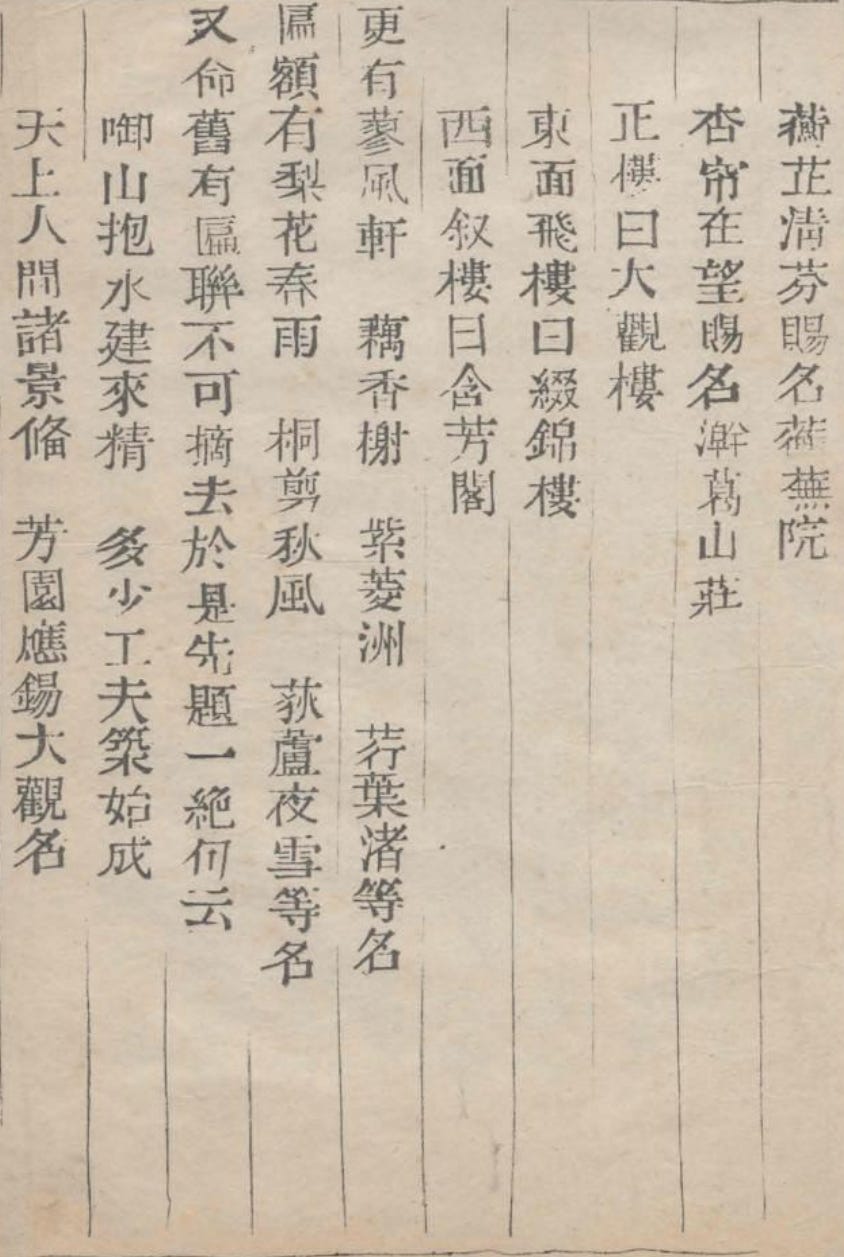 蘅芷清芬賜名蘅蕪院
杏帘在望賜名澣葛山莊
正樓曰大觀樓
東面飛樓曰綴錦樓
西面叙樓曰含芳閣
更有蓼風軒　藕香榭　紫菱洲　荇葉渚等名
匾額有梨花春雨　桐剪秋風　荻蘆夜雪等名
又命舊有匾聯不可摘去於是先題一絶何云
啣山抱水建來精　多少工夫築始成
天上人間諸景俻　芳園應錫大觀名